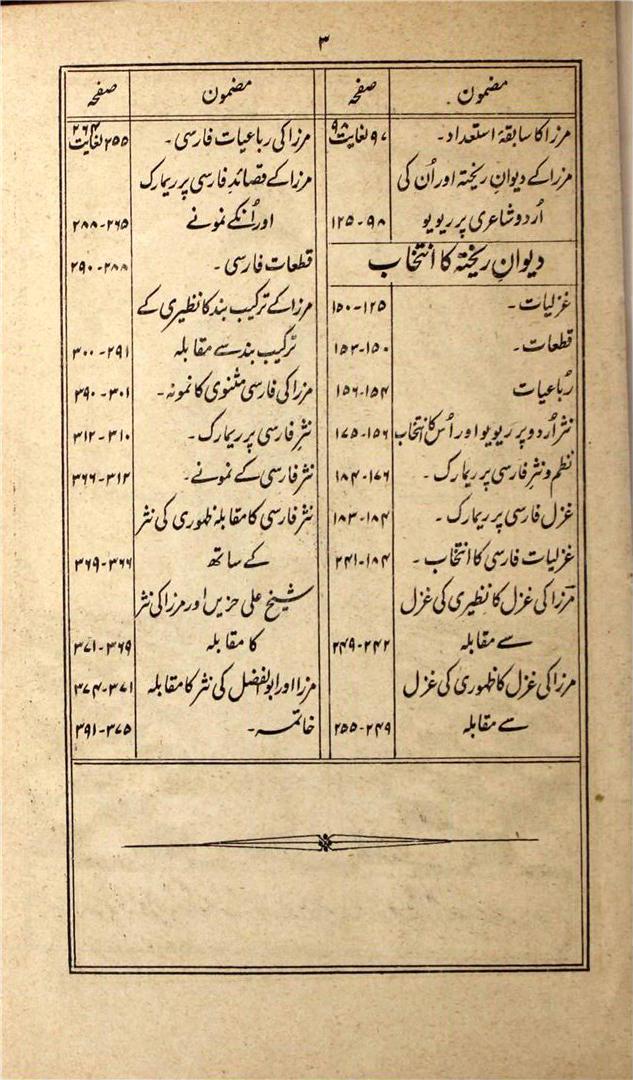 ۳
مضمون صفحہ
مرزا کا سابقۂ استعداد۔ ۹۷ لغایت ۹۸
مرزا کے دیوانِ ریختہ اور اُن کی
اُردو شاعری پر ریویو ۹۸-۱۲۵
دیوانِ ریختہ کا انتخاب
غزلیات۔ ۱۲۵-۱۵۰
قطعات۔ ۱۵۰-۱۵۳
رُباعیات ۱۵۴-۱۵۶
نثر اُردو پر ریویو اور اُس کا انتخاب ۱۵۶-۱۷۵
نظم و نثر فارسی پر ریمارک۔ ۱۷۶-۱۸۴
غزل فارسی پر ریمارک۔ ۱۸۴-۱۸۳
غزلیات فارسی کا انتخاب۔ ۱۸۴-۲۴۱
مرزا کی غزل کا نظیری کی غزل
سے مقابلہ ۲۴۲-۲۴۹
مرزا کی غزل کا ظہوری کی غزل
سے مقابلہ ۲۴۹-۲۵۵
مضمون صفحہ
مرزا کی رباعیات فارسی۔ ۲۵۵ لغایت ۲۶۴
مرزا کے قصائد فارسی پر ریمارک
اور اُنکے نمونے ۲۶۵-۲۸۸
قطعات فارسی۔ ۲۸۸-۲۹۰
مرزا کے ترکیب بند کا نظیری کے
ترکیب بند سے مقابلہ ۲۹۱-۳۰۰
مرزا کی فارسی مثنوی کا نمونہ۔ ۳۰۱-۳۹۰
نثر فارسی پر ریمارک۔ ۳۱۰-۳۱۲
نثر فارسی کے نمونے۔ ۳۱۲-۳۶۶
نثر فارسی کا مقابلہ ظہوری کی نثر
کے ساتھ ۳۶۶-۳۶۹
شیخ علی حزیں اور مرزا کی نثر
کا مقابلہ ۳۶۹-۳۷۱
مرزا اور ابوالفضل کی نثر کا مقابلہ ۳۷۱-۳۷۴
خاتمہ۔ ۳۷۵-۳۹۱